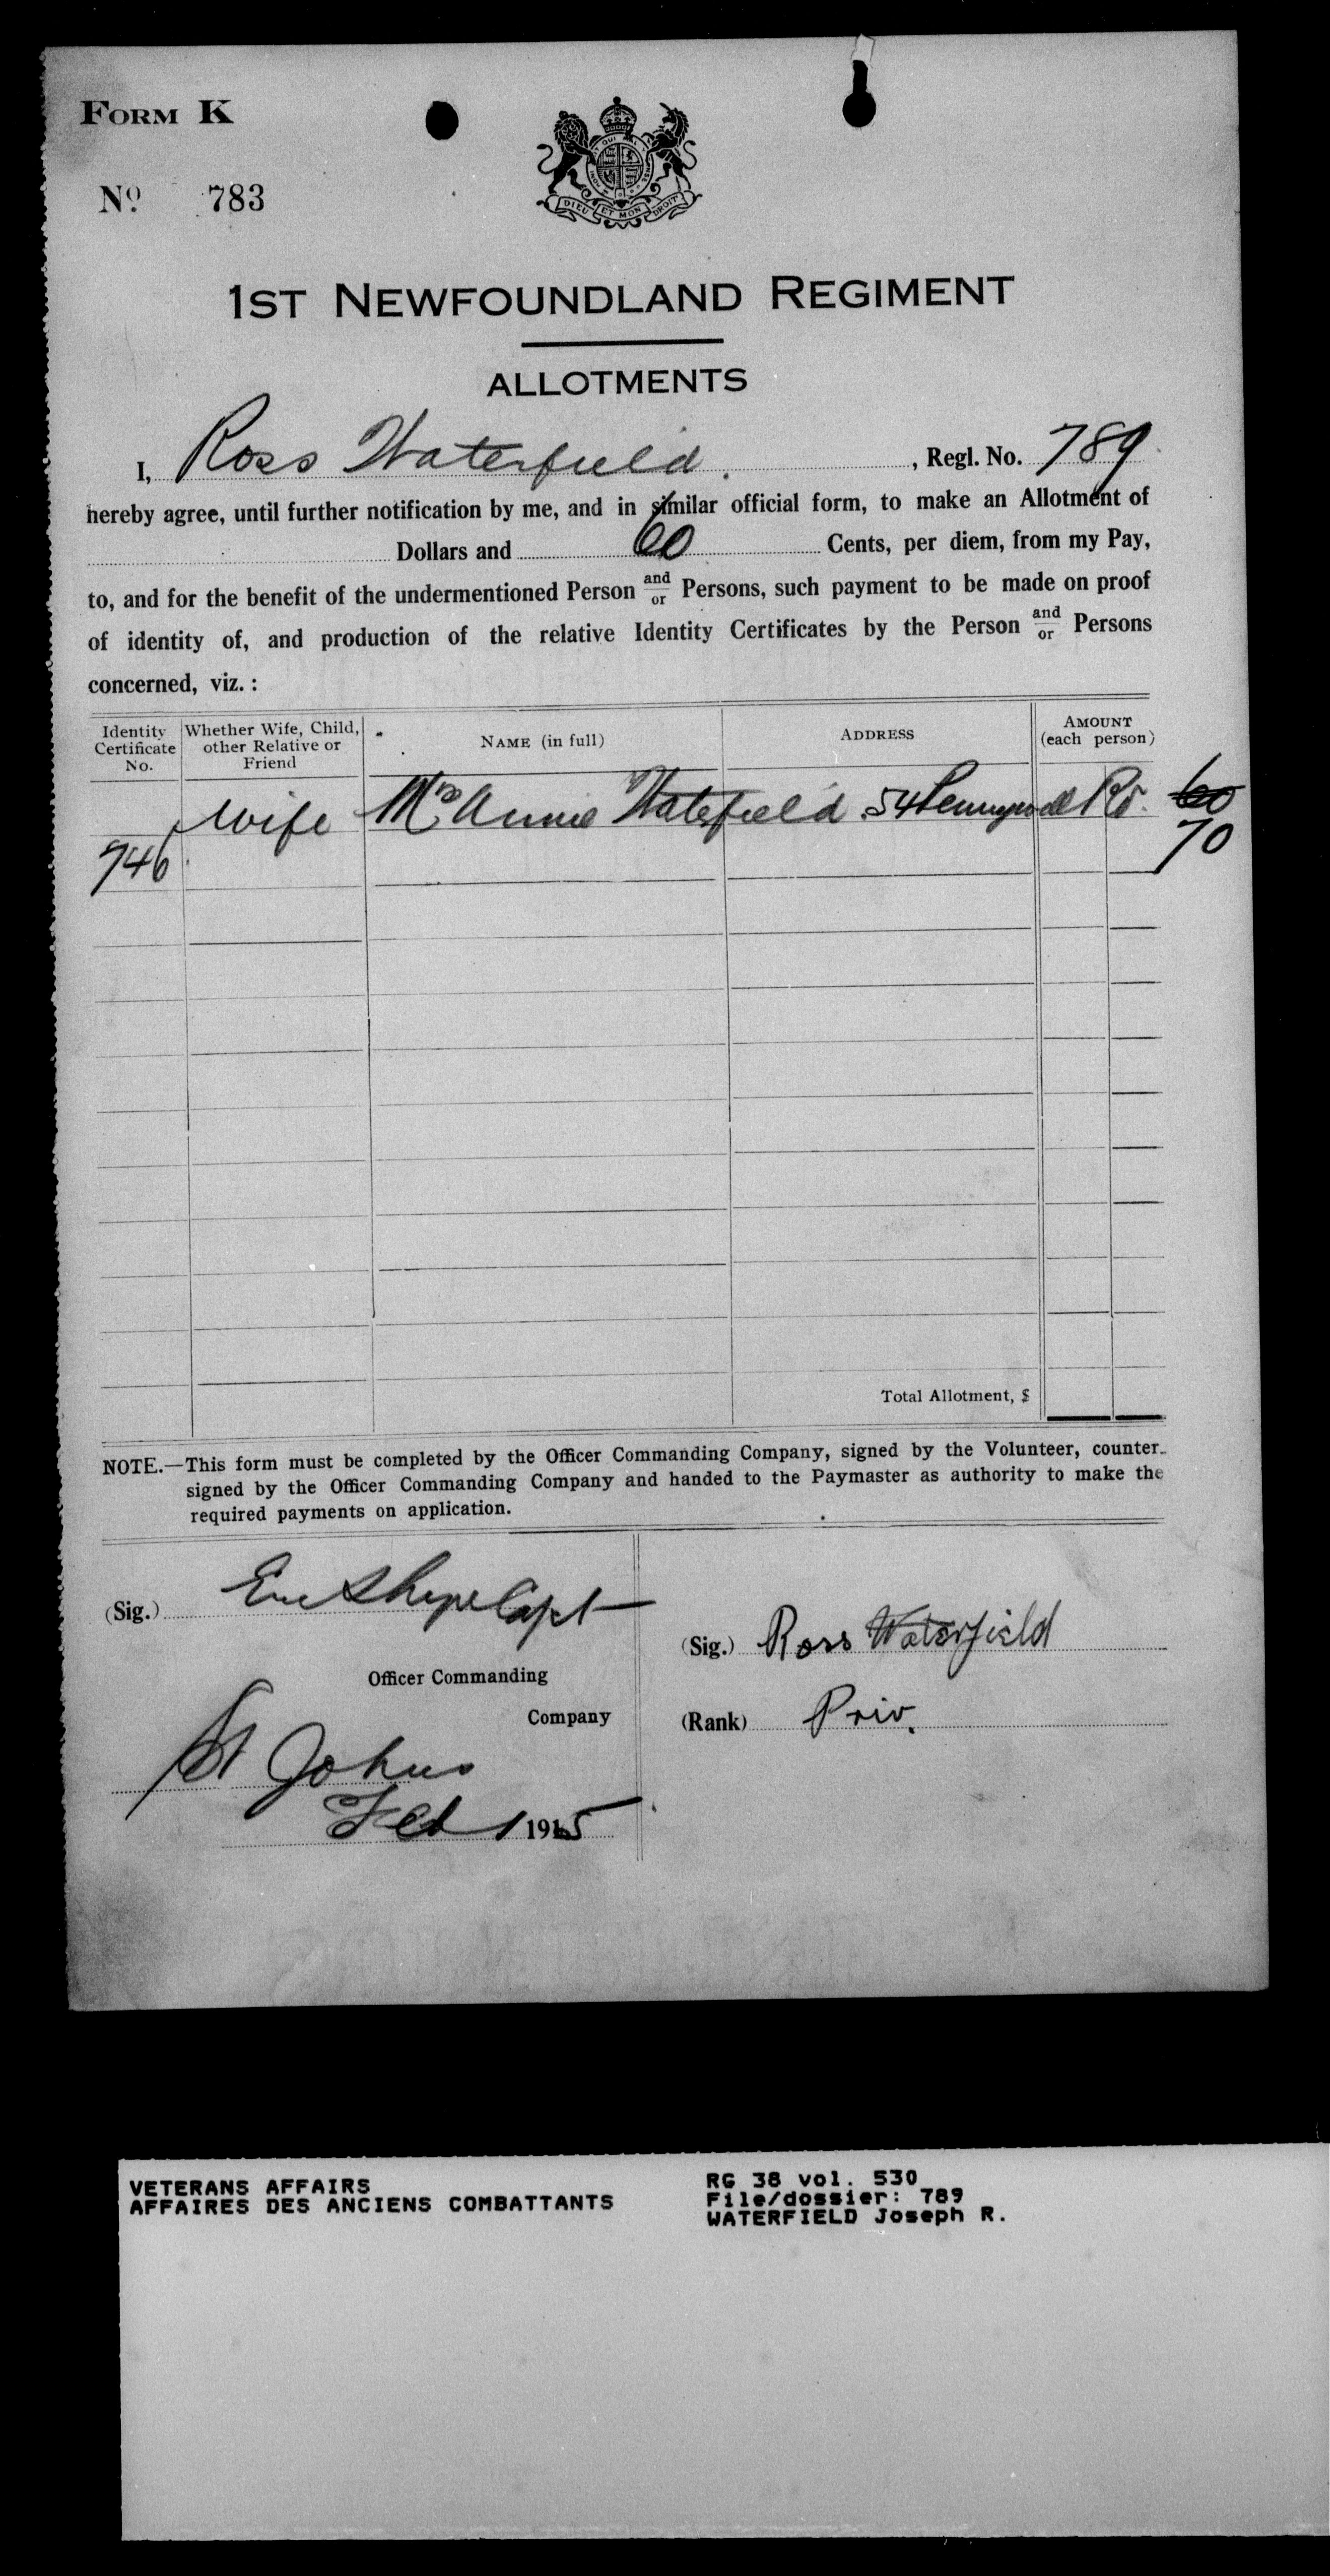 FORM K
Nº 783
DIEU ET MON DROIT
1ST NEWFOUNDLAND REGIMENT
ALLOTMENTS
I, Ross Waterfield. , Regl. No. 789
hereby agree, until further notification by me, and in similar official form, to make an Allotment of
Dollars and 60 Cents, per diem, from my Pay,
to, and for the benefit of the undermentioned Person and/or Persons, such payment to be made on proof
of identity of, and production of the relative Identity Certificates by the Person and/or Persons
concerned, viz. :
Identity Certificate No. Whether Wife, Child, other Relative or Friend NAME (in full) ADDRESS AMOUNT (each person)
Wife Mrs Annie Waterfield 54 Pennywell Rd. 60
746 70
Total Allotment, $
NOTE.—This form must be completed by the Officer Commanding Company, signed by the Volunteer, counter-
signed by the Officer Commanding Company and handed to the Paymaster as authority to make the
required payments on application.
(Sig.) Capt
Officer Commanding
Company
St Johns
Feb 1 1915
(Sig.) Ross Waterfield
(Rank) Priv.
VETERANS AFFAIRS
AFFAIRES DES ANCIENS COMBATTANTS
RG 38 vol. 530
File/dossier: 789
WATERFIELD Joseph R.